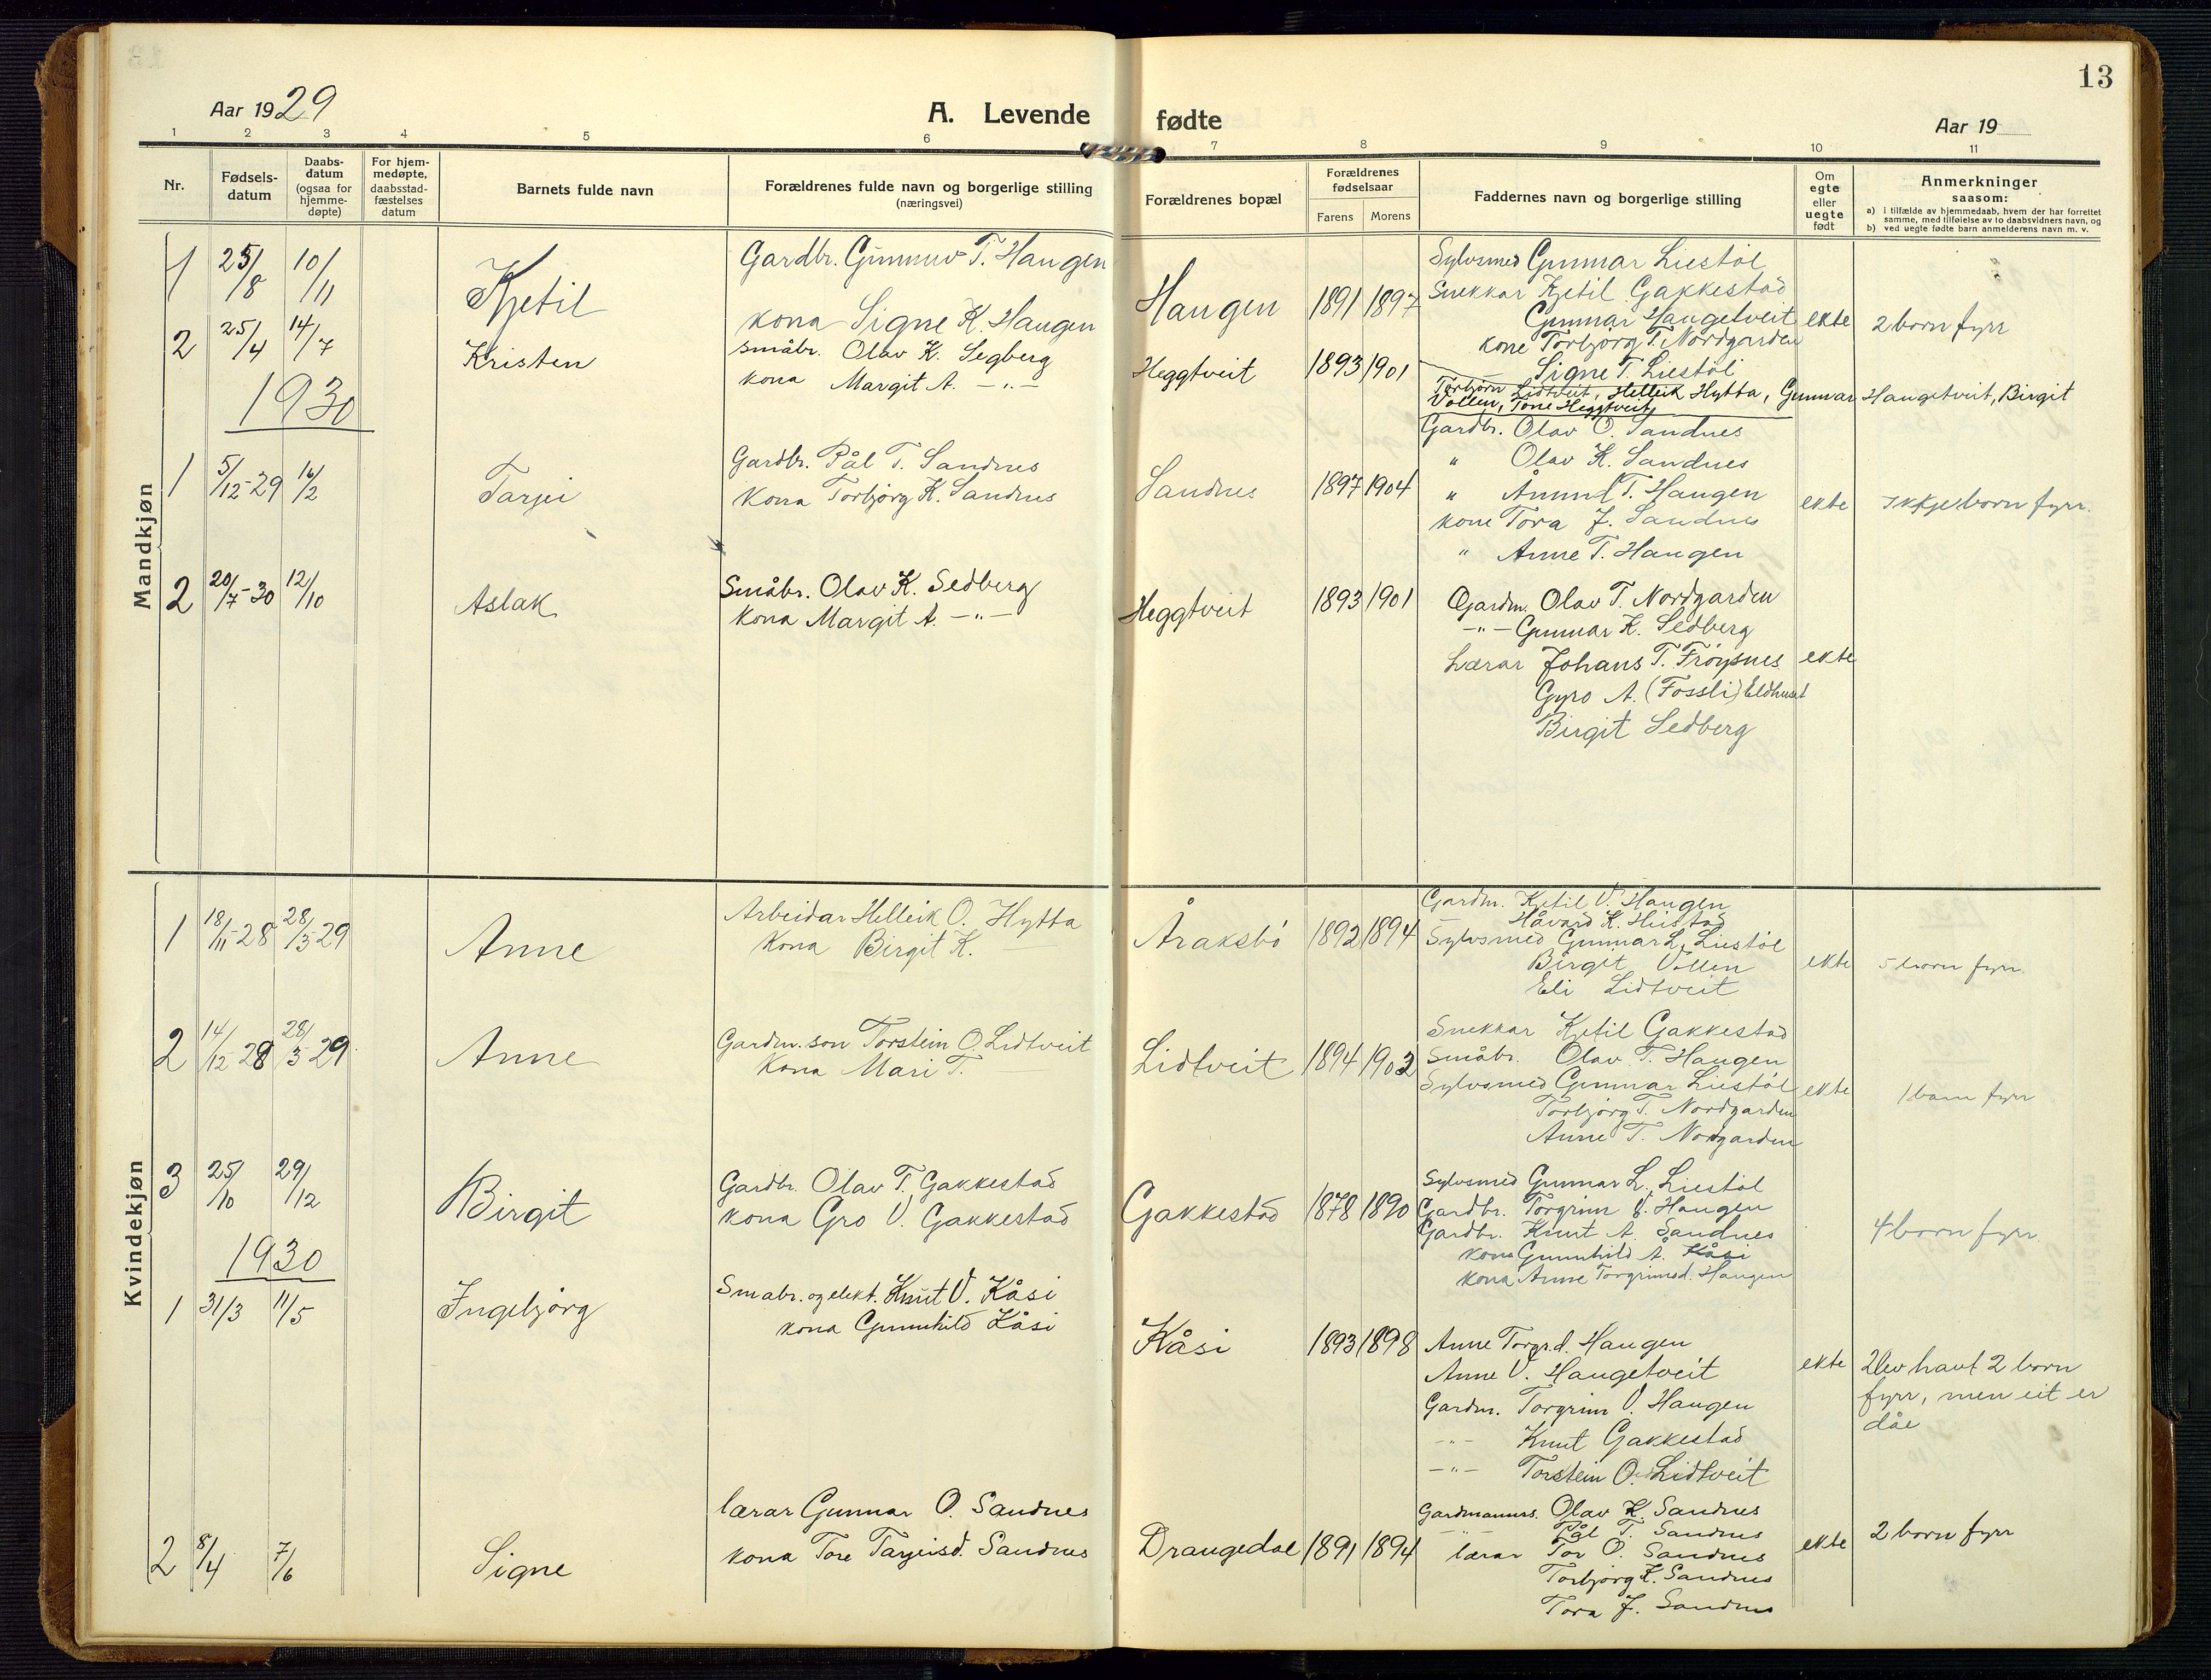 13
Aar 1929
A. Levende fødte
Aar 19
1 2 3 4 5 6 7 8 9 10 11
Nr.
Fødsels-datum
Daabs-datum (ogsaa for hjemme-døpte)
For hjem-medøpte, daabsstad-fæstelses datum
Barnets fulde navn
Forældrenes fulde navn og borgerlige stilling
(næringsvei)
Forældrenes bopæl
Forældrenes fødselsaar
Farens Morens
Faddernes navn og borgerlige stilling
Om egte eller uegte født
Anmerkninger
saasom:
a) i tilfælde av hjemmedaab, hvem der har forrettet
samme, med tilføielse av to daabsvidners navn, og
b) ved uegte fødte barn anmelderens navn m. v.
Mandkjøn
1 25/8 10/11 Kjetil
Gardbr. Gunnuv T. Haugen
kona Signe K. Haugen
Haugen 1891 1897
Sylvsmed Gunnar Liestøl
Snekkar Kjetil Gakkestad
Gunnar Haugetveit
kone Torbjørg T. Nordgarden
Signe T. Liestøl
ekte 2 born fyrr
2 25/4 14/7 Kristen
småbr. Olav K. Segberg
kona Margit A. — " —
Heggtveit 1893 1901
Torbjørn Lidtveit, Helleik Hytta, Gunnar Haugetveit, Birgit
Vollen, Tone Heggtveit
1930
1 5/12-29 16/2 Tarjei
Gardbr. Pål T. Sandnes
Kona Torbjørg K. Sandnes
Sandnes 1897 1904
Gardbr. Olav O. Sandnes
" Olav K. Sandnes
" Åmund T. Haugen
kone Tora J. Sandnes
" Anne T. Haugen
ekte Ikkje born fyrr.
2 20/7-30 12/10 Aslak
Småbr. Olav K. Sedberg
kona Margit A. — " —
Heggtveit 1893 1901
Gardm. Olav T. Nordgarden
— " — Gunnar K. Sedberg
Lærar Johans T. Frøysnes
Gyro A. (Fossli) Eldhuset
Birgit Sedberg
ekte
Kvindekjøn
1 18/11-28 28/3-29 Anne
Arbeidar Helleik O. Hytta
Kona Birgit K.
Åraksbø 1892 1894
Gardm. Kjetil V. Haugen
Håvard K.
Sylvsmed Gunnar L. Liestøl
Birgit Vollen
Eli Lidtveit
ekte 5 born fyrr.
2 14/12-28 28/3-29 Anne
Gardm. son Torstein O. Lidtveit
Kona Mari T.
Lidtveit 1894 1902
Snekkar Kjetil Gakkestad
Småbr. Olav T. Haugen
Sylvsmed Gunnar Liestøl
Torbjørg T. Nordgarden
Anne T. Nordgarden
ekte 1 barn fyrr
3 25/10 29/12 Birgit
Gardbr. Olav T. Gakkestad
kona Gro V. Gakkestad
Gakkestad 1878 1890
Sylvsmed Gunnar L. Liestøl
Gardbr. Torgrim V. Haugen
Gardbr. Knut A. Sandnes
kona Gunnhild A. Kåsi
kona Anne Torgrimsd. Haugen
4 born fyrr
1930
1 31/3 11/5 Ingebjørg
Småbr. og elekt. Knut V. Kåsi
kona Gunnhild Kåsi
Kåsi 1893 1898
Anne Torgr.d. Haugen
Anne V. Haugetveit
Gardm. Torgrim V. Haugen
— " — Knut Gakkestad
— " — Torstein O. Lidtveit
ekte
havt 2 born
fyrr, men eit er
dåe
2 8/4 7/6 Signe
lærar Gunnar O. Sandnes
kona Tore Tarjeisd. Sandnes
Drangedal 1891 1894
Gardmanns. Olav K. Sandnes
— " — Pål T. Sandnes
lærar Tor O. Sandnes
Torbjørg K. Sandnes
Tora J. Sandnes
ekte 2 born fyrr